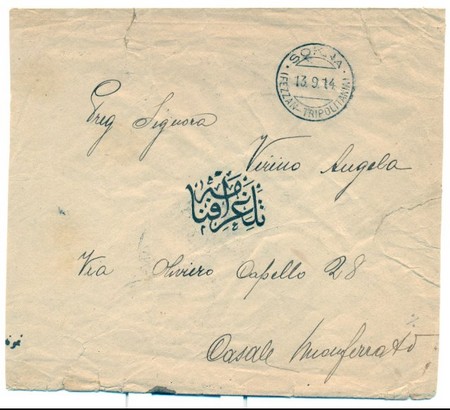 SOKNA
13.9.14
(FEZZAN-TRIPOLITANIA)
Preg Signora
Virino Angela
تلغرافنامه
Via Oliviero Capello 28
Casale Monferrato